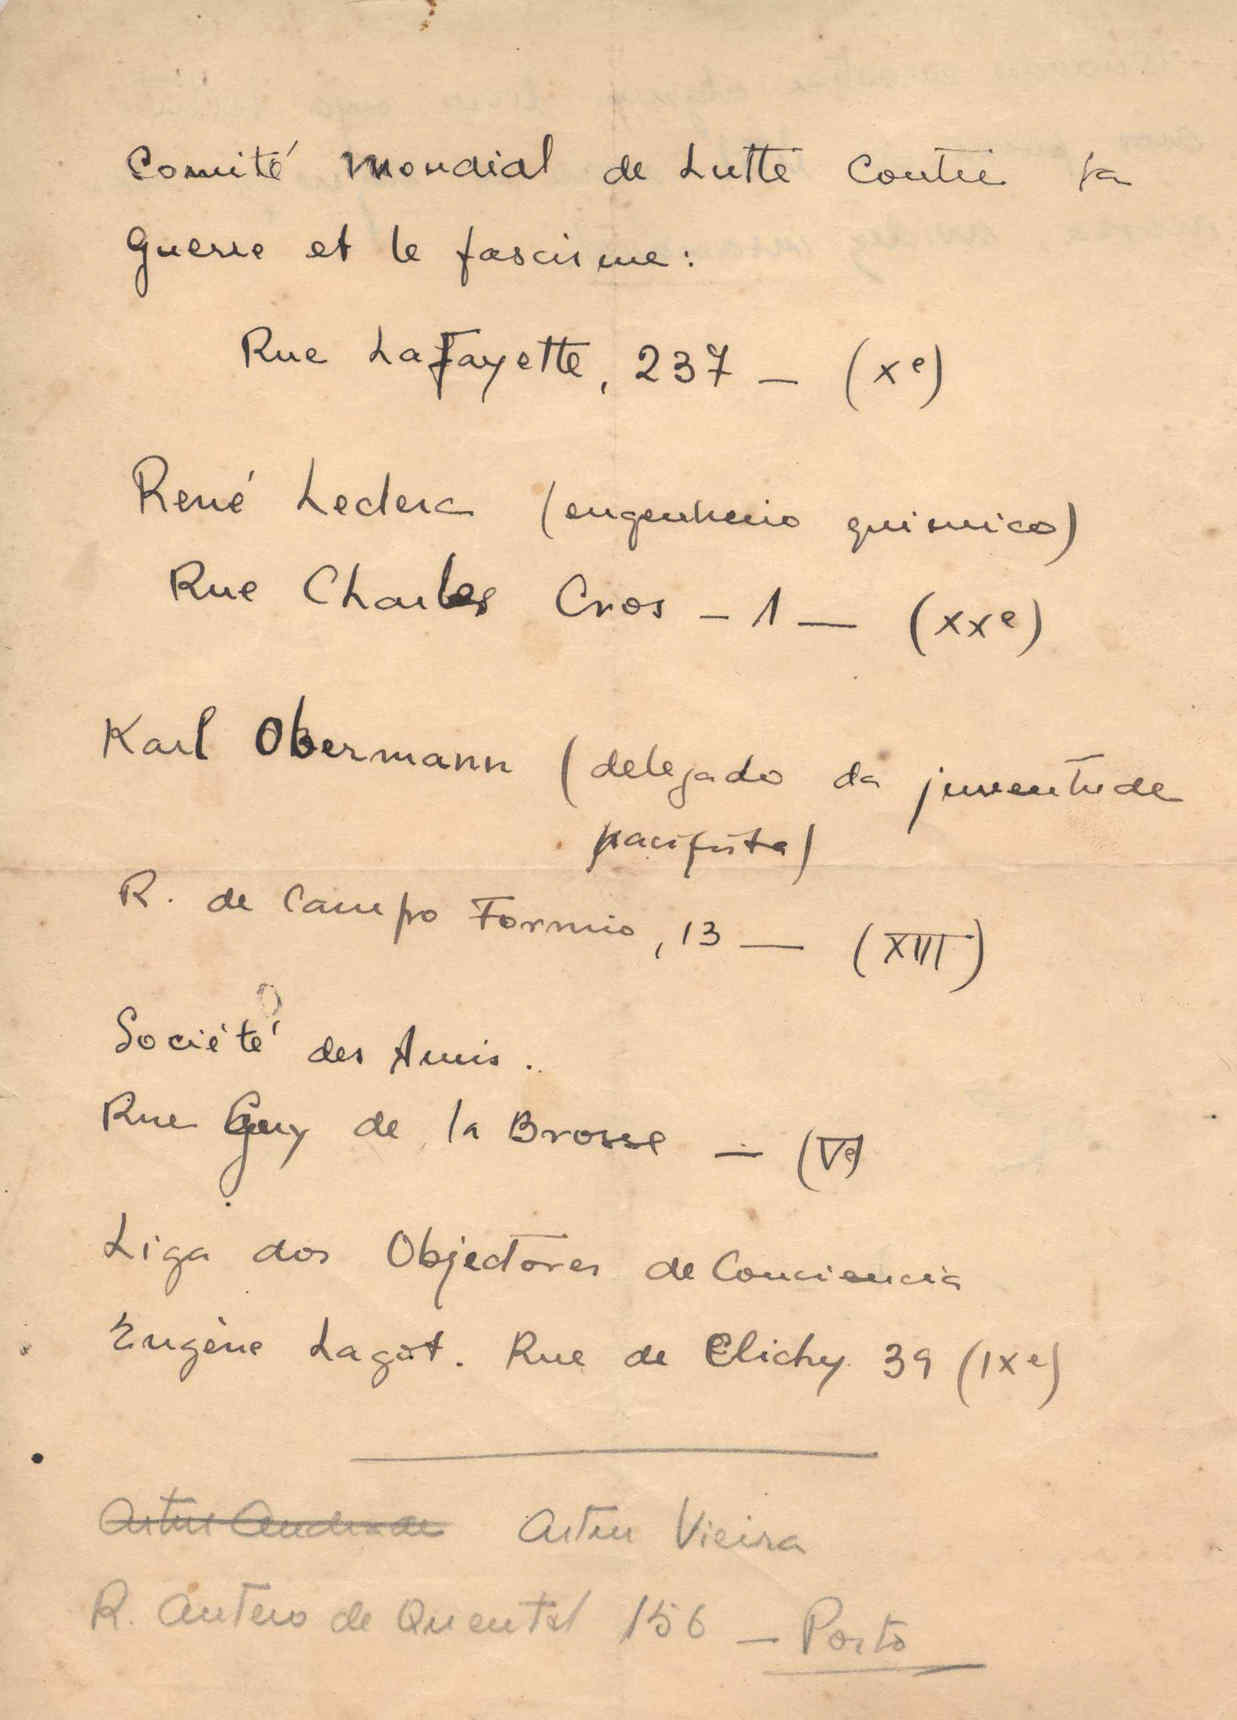 Comité Mondial de Lutte Contre la
Guerre et le fascisme:
Rue Lafayette, 237 — (Xe)
René Leclerc (engenheiro quimico)
Rue Charles Cros – 1 — (XXe)
Karl Obermann (delegado da juventude
pacifista)
R. de Campo Formio, 13 — (XIII)
Société des Amis.
Rue Guy de la Brosse — (Ve)
Liga dos Objectores de Conciencia
Eugène Lagot. Rue de Clichy 39 (IXe)
Artur Andrade Artur Vieira
R. Antero de Quental 156 — Porto